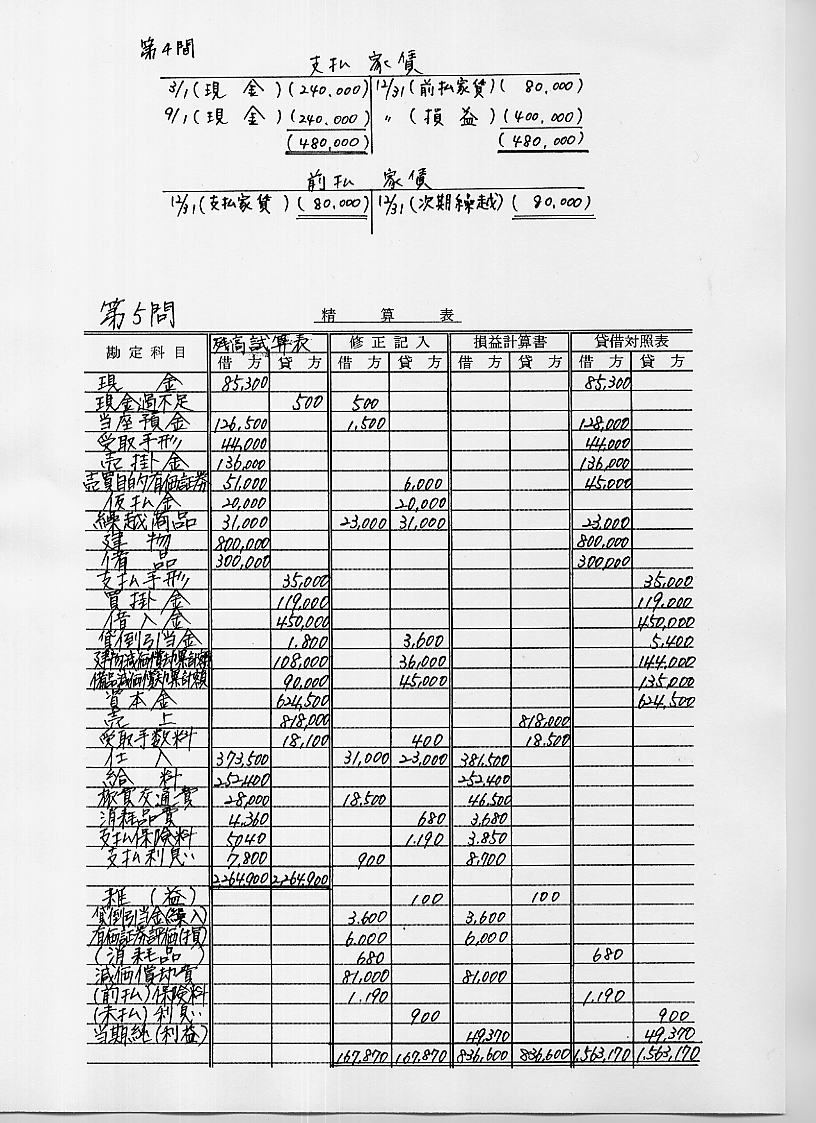 第4問
支払家賃
3/1(現金)(240.000) 12/31(前払家賃)( 80,000)
9/1(現金)(240.000) 〃 (損益)(400,000)
(480,000) (480,000)
前払家賃
12/31(支払家賃)(80.000) 12/31(次期繰越)( 80,000)
第5問
精算表
勘定科目 残高試算表 修正記入 損益計算書 貸借対照表
借方 貸方 借方 貸方 借方 貸方 借方 貸方
現金 85,300 85,300
現金過不足 500 500
当座預金 126,500 1,500 128,000
受取手形 44,000 44,000
売掛金 136,000 136,000
売買目的有価証券 51,000 6,000 45,000
仮払金 20,000 20,000
繰越商品 31,000 23,000 31,000 23,000
建物 800,000 800,000
備品 300,000 300,000
支払手形 35,000 35,000
買掛金 119,000 119,000
借入金 450,000 450,000
貸倒引当金 1.800 3,600 5,400
建物減価償却累計額 108,000 36,000 144,000
備品減価償却累計額 90,000 45,000 135,000
資本金 624,500 624,500
売上 818,000 818,000
受取手数料 18,100 400 18.500
仕入 373,500 31,000 23,000 381,500
給料 252,400 252,400
旅費交通費 28,000 18,500 46,500
消耗品費 4,360 680 3,680
支払保険料 5040 1.190 3.850
支払利息 7,800 900 8,700
2,264,900 2,264,900
雑(益) 100 100
貸倒引当金(繰入) 3.600 3,600
有価証券評価(損) 6,000 6,000
(消耗品) 680 680
減価償却費 81,000 81,000
(前払)保険料 1.190 1.190
(未払)利息 900 900
当期純(利益) 49,370 49,370
167,870 167,870 836,600 836,600 1,563,170 1,563,170